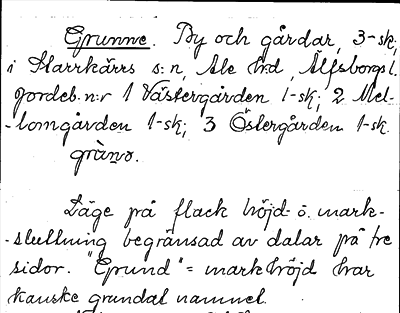 Grunne. By och gårdar, 3-sk;
i Starrkärrs s:n, Ale hrd, Älfsborgs l.
Jordeb. n:r 1 Västergården 1-sk; 2 Mel-
-lomgården 1-sk; 3 Östergården 1-sk.
grànɒ.
Läge på flack höjd- o. mark-
-sluttning begränsad av dalar på tre
sidor. "Grund" = markhöjd har
kanske grundat namnet.